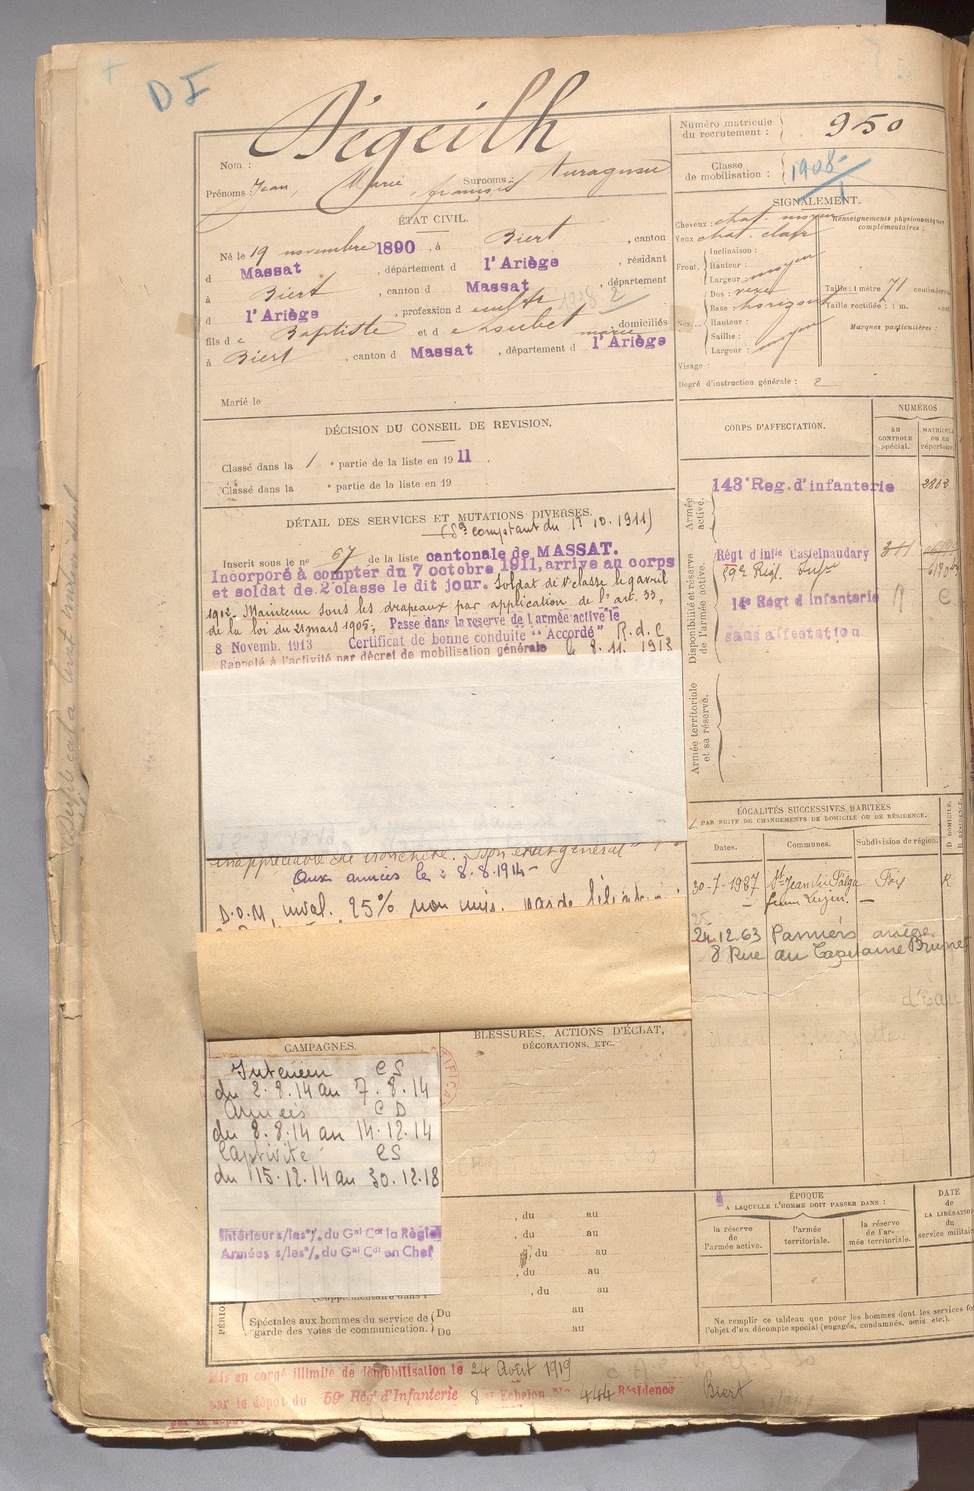 DI
Dégeilh
Nom :
Prénoms : Jean, Marie, françois Surnoms :
Numéro matricule
du recrutement : 950
Classe
de mobilisation : 1908
ÉTAT CIVIL.
Né le 19 novembre 1890, à Biert, canton
d Massat, département d l'Ariège, résidant
à Biert, canton d Massat, département
d l'Ariège, profession d cultr
fils de Baptiste et de Loubet marie domiciliés
à Biert, canton d Massat, département d l'Ariège
Marié le
SIGNALEMENT.
Cheveux : chat. moyen
Yeux chat. clair
Renseignements physionomiques
complémentaires :
Front.
Inclinaison :
Hauteur :
Largeur : moyen
Nez.
Dos : vexe
Base horizont
Hauteur :
Saillie :
Largeur : moyen
Taille : 1 mètre 71 centimètres
Taille rectifiée : 1 m.
Marques particulières :
Visage :
Degré d'instruction générale : 2
DÉCISION DU CONSEIL DE REVISION.
Classé dans la 1 e partie de la liste en 1911
Classé dans la e partie de la liste en 19
DÉTAIL DES SERVICES ET MUTATIONS DIVERSES.
(Sce comptant du 1r 10.1911)
Inscrit sous le no 67 de la liste cantonale de MASSAT.
Incorporé à compter du 7 octobre 1911, arrive au corps
et soldat de 2e classe le dit jour. Soldat de 1e classe le 9 avril
1912. Maintenu sous les drapeaux par application de l'art. 33,
de la loi du 21 mars 1905; Passe dans la réserve de l'armée active le
8 Novemb. 1913 Certificat de bonne conduite "Accordé" R.d.C
Rappelé à l'activité par décret de mobilisation générale
inappréciable de bronchite. Bon état général
Aux armées le : 8.8.1914
D.O.M, inval. 25% non
CORPS D'AFFECTATION.
NUMÉROS
AU
CONTROLE
spécial.
MATRICULE
OU AU
répertoire.
Armée
active.
143e Reg. d'infanterie
Disponibilité et réserve
de l'armée active.
Régt d'infie Castelnaudary
59e Régt. Infie
14e Régt d'infanterie
sans affectation
Armée territoriale
et sa réserve.
LOCALITÉS SUCCESSIVES HABITÉES
PAR SUITE DE CHANGEMENTS DE DOMICILE OU DE RÉSIDENCE.
Dates.
Communes.
Subdivision de région.
30-7-1937 St Jean du Falga Foix R
24.12.63 Pamiers ariège
8 Rue du Capitaine Brunet
CAMPAGNES.
Intérieur CS
du 2.8.14 au 7.8.14
Armées CD
du 8.8.14 au 14.12.14
Captivité CS
du 15.12.14 au 30.12.18
Intérieurs s/les o/. du Gal Cdt la Région
Armées s/les o/. du Gal Cdt en Chef
BLESSURES, ACTIONS D'ÉCLAT,
DÉCORATIONS, ETC.
, du au
, du au
, du au
, du au
, du au
Spéciales aux hommes du service de
garde des voies de communication.
Du au
Du au
ÉPOQUE
A LAQUELLE L'HOMME DOIT PASSER DANS :
la réserve
de
l'armée active.
l'armée
territoriale.
la réserve
de l'ar-
mée territoriale.
DATE
de
LA LIBÉRATION
du
service militaire
Ne remplir ce tableau que pour les hommes dont les services font
l'objet d'un décompte spécial (engagés, condamnés, omis etc.).
Mis en congé illimité de démobilisation le 24 Août 1919
par le dépôt du 59e Régt d'Infanterie 8e Echelon No 444 Résidence Biert